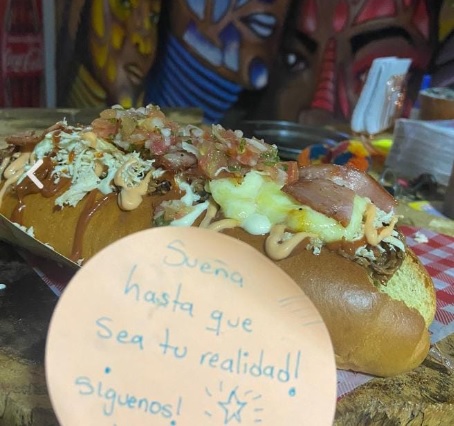 Sueña
hasta que
Sea tu realidad!
Siguenos!